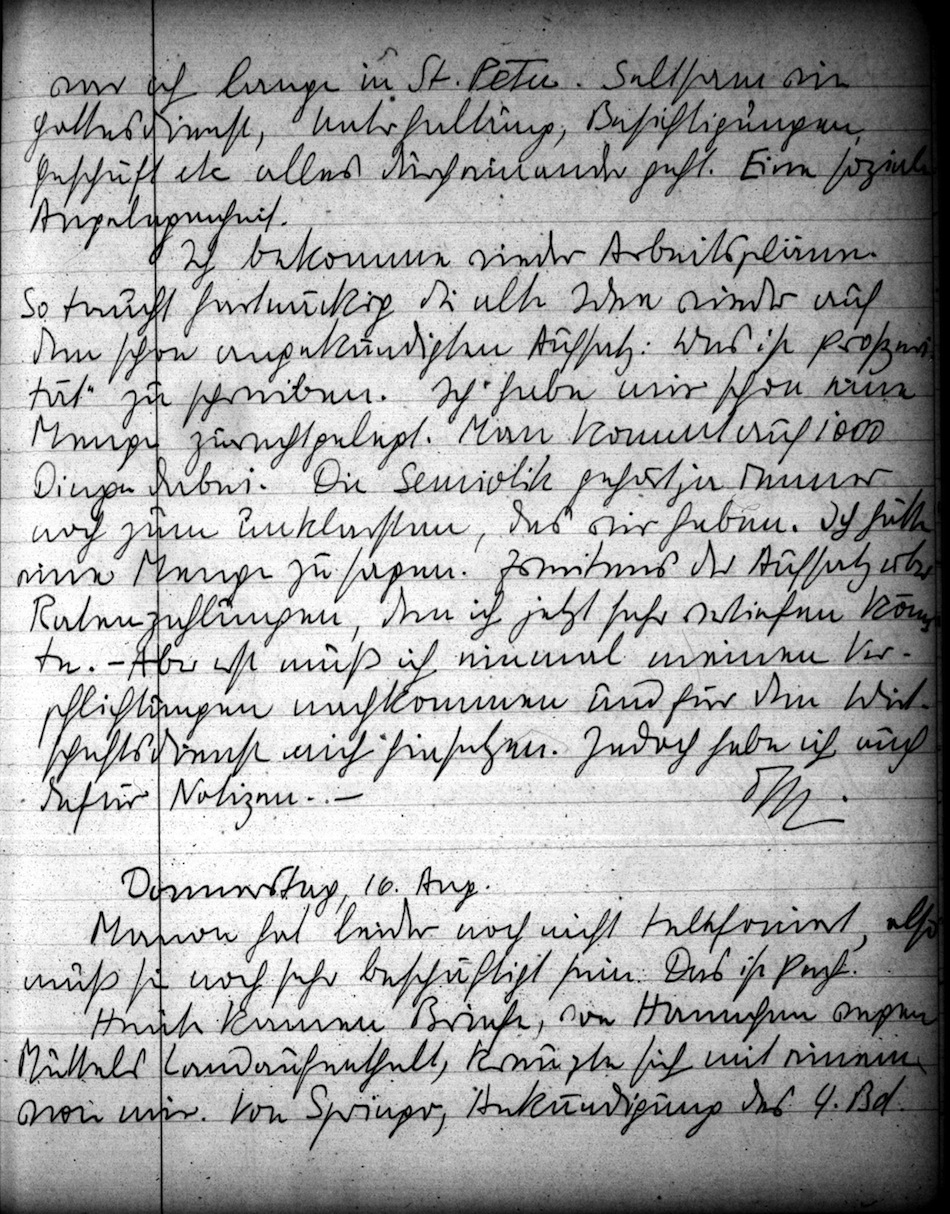 war ich lange in St. Peter. Seltsam wie
Gottesdienst, Unterhaltung, Besichtigungen,
Geschäft etc alles durcheinander geht. Eine soziale
Angelegenheit.
Ich bekomme wieder Arbeitspläne.
So taucht hartnäckig die alte Idee wieder auf
den schon angekündigten Aufsatz: Was ist Prosperi-
tät" zu schreiben. Ich habe mir schon eine
Menge zurechtgelegt. Man kommt auf 1000
Dinge dabei. Die Semiotik gehört ja immer
noch zum Unklarsten, das wir haben. Ich hätte
eine Menge zu sagen. Zweitens der Aufsatz über
Ratenzahlungen, den ich jetzt sehr vertiefen könn-
te. – Aber erst muß ich einmal meinen Ver-
pflichtungen nachkommen und für den Wirt-
schaftsdienst mich hinsetzen. Jedoch habe ich auch
dafür Notizen. . –
Donnerstag, 16. Aug.
Marion hat leider noch nicht telefoniert, also
muß sie noch sehr beschäftigt sein. Das ist Pech.
Heute kamen Briefe, von Hannchen wegen
Muttels Landaufenthalt, kreuzte sich mit einem
von mir. Von Springer, Ankündigung des 4. Bd.